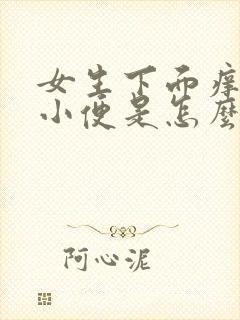 女生下而痒
小便是怎麼
阿心泥